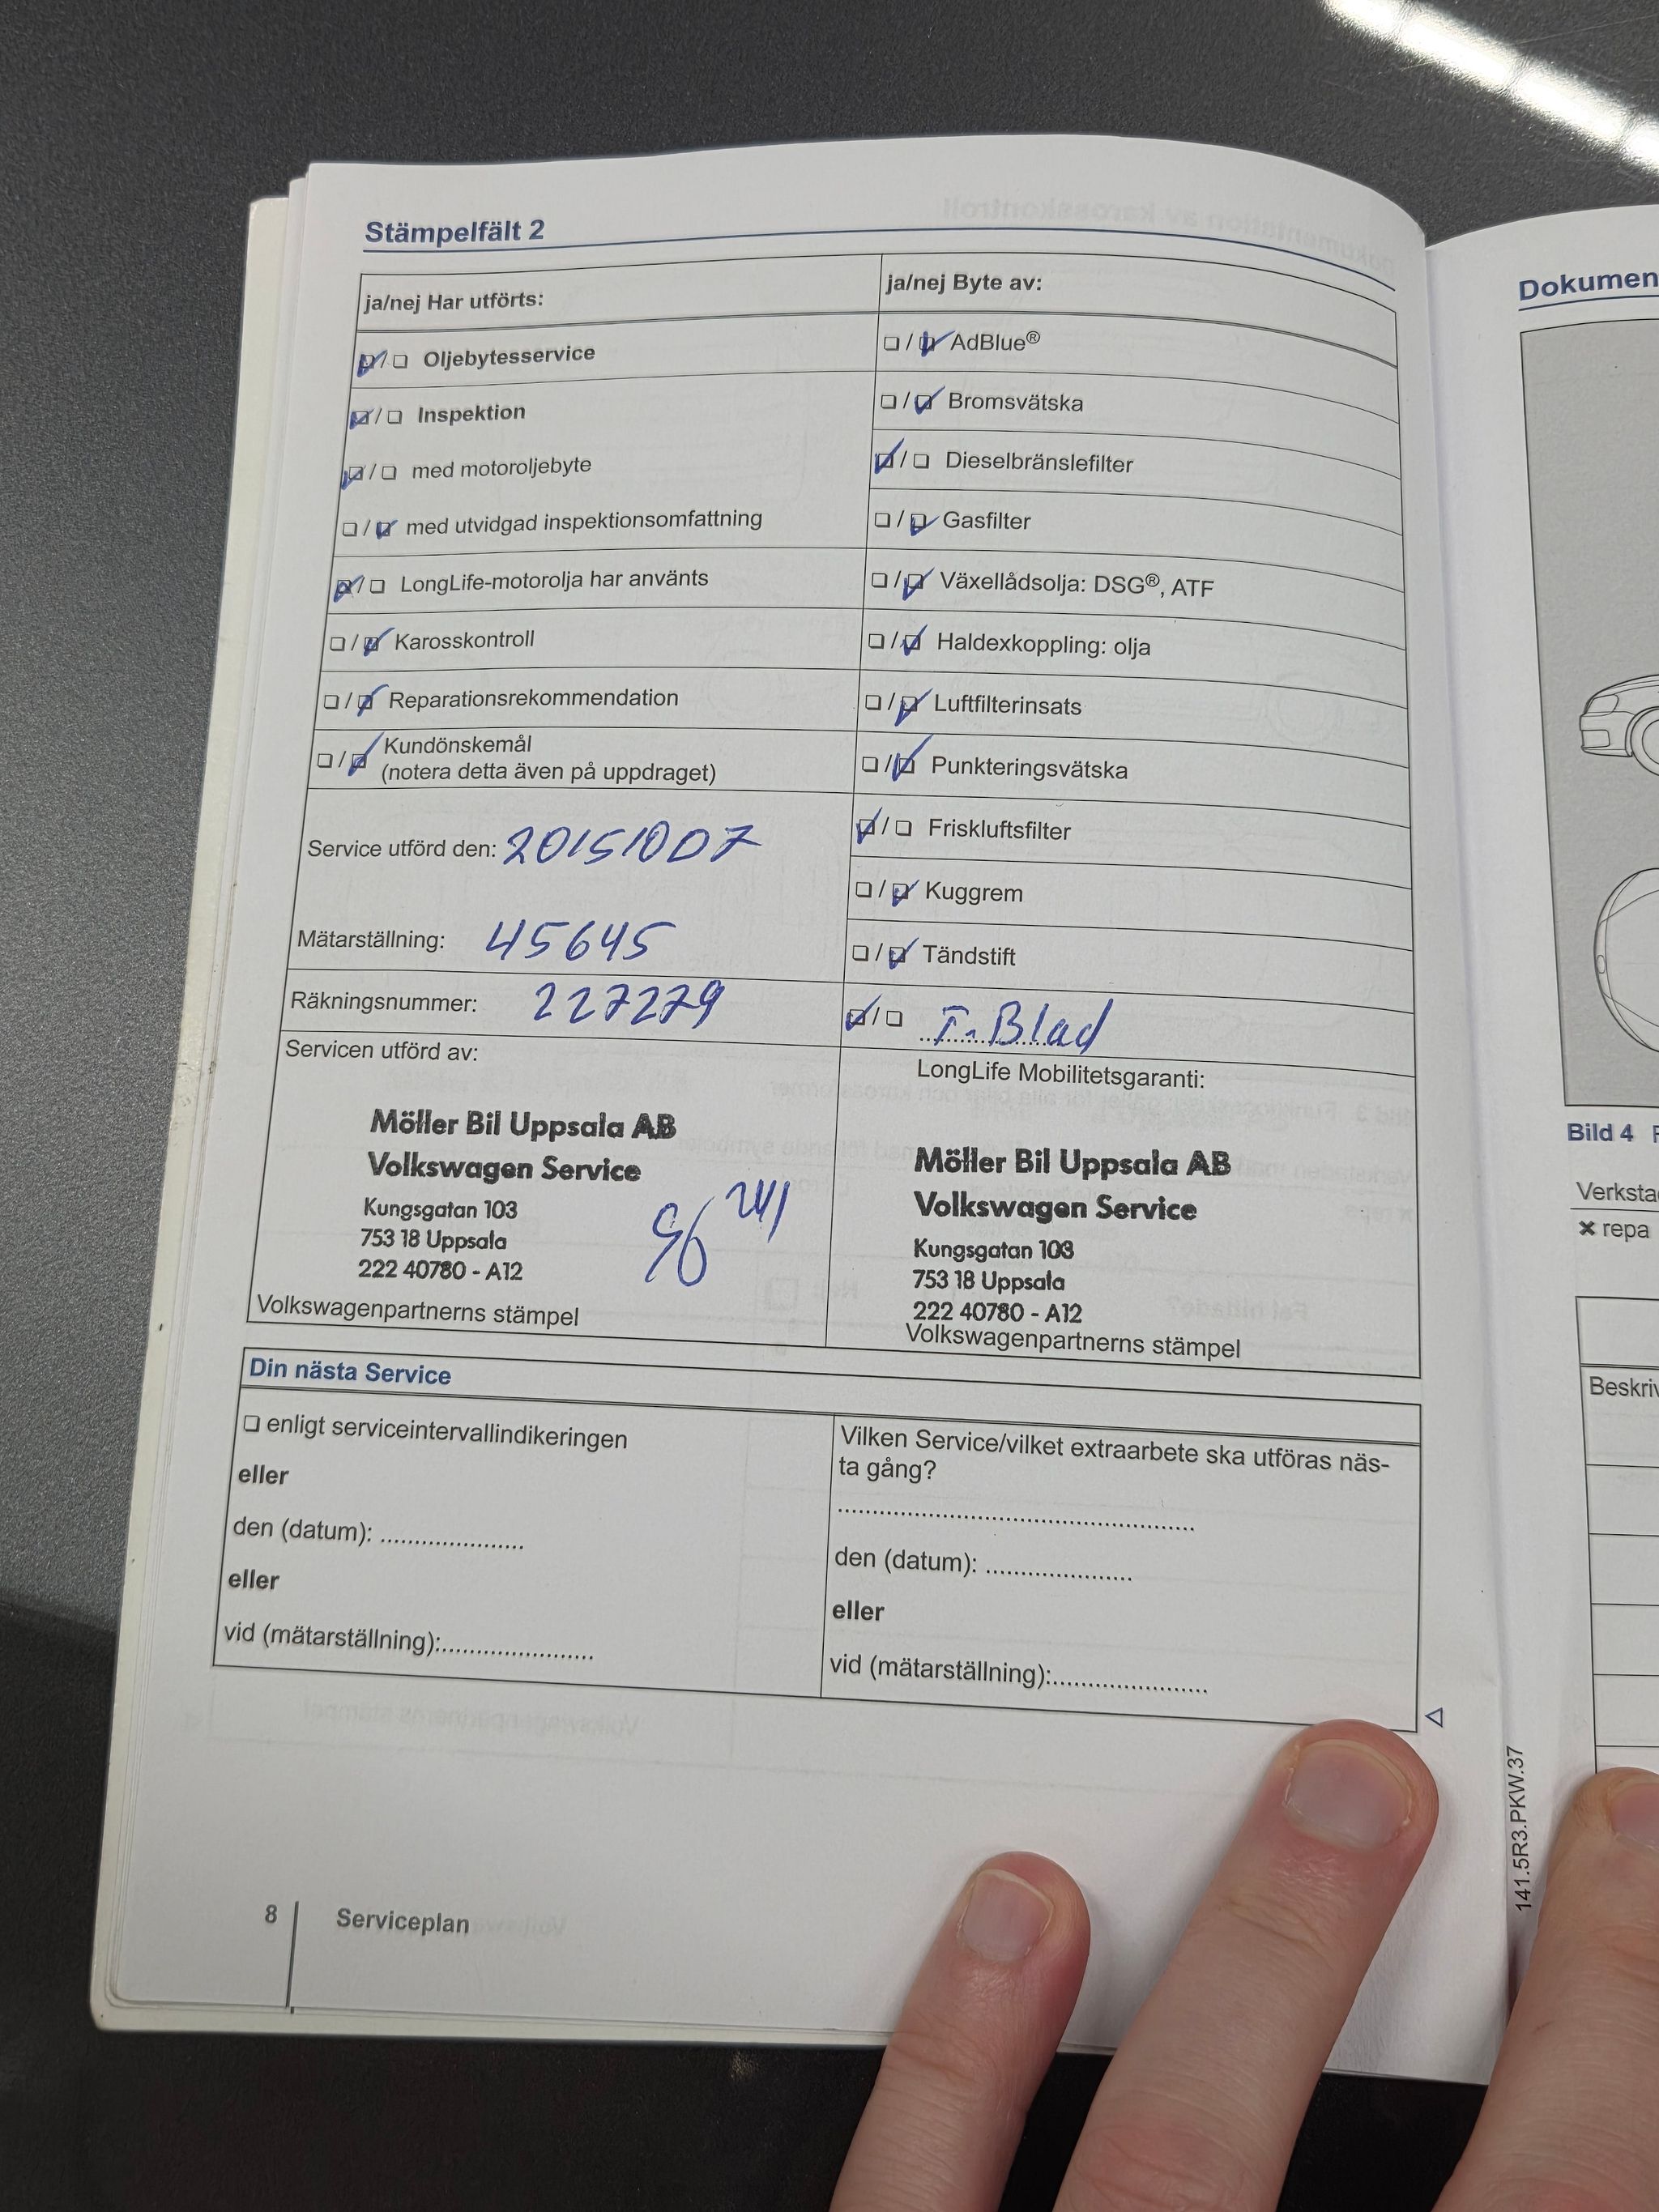 Stämpelfält 2
ja/nej Har utförts:
☑/☐ Oljebytesservice
☑/☐ Inspektion
☑/☐ med motoroljebyte
☐/☑ med utvidgad inspektionsomfattning
☑/☐ LongLife-motorolja har använts
☐/☑ Karosskontroll
☐/☑ Reparationsrekommendation
☐/☑ Kundönskemål
(notera detta även på uppdraget)
Service utförd den: 20151007
Mätarställning: 45645
Räkningsnummer: 227279
Servicen utförd av:
Möller Bil Uppsala AB
Volkswagen Service
Kungsgatan 103
753 18 Uppsala
222 40780 - A12
Volkswagenpartnerns stämpel
ja/nej Byte av:
☐/☑ AdBlue®
☐/☑ Bromsvätska
☑/☐ Dieselbränslefilter
☐/☑ Gasfilter
☐/☑ Växellådsolja: DSG®, ATF
☐/☑ Haldexkoppling: olja
☐/☑ Luftfilterinsats
☐/☑ Punkteringsvätska
☑/☐ Friskluftsfilter
☐/☑ Kuggrem
☐/☑ Tändstift
☑/☐ T-Blad
LongLife Mobilitetsgaranti:
Möller Bil Uppsala AB
Volkswagen Service
Kungsgatan 103
753 18 Uppsala
222 40780 - A12
Volkswagenpartnerns stämpel
Din nästa Service
☐ enligt serviceintervallindikeringen
eller
den (datum): .....................
eller
vid (mätarställning):.......................
Vilken Service/vilket extraarbete ska utföras näs-
ta gång?
......................................................
den (datum): ......................
eller
vid (mätarställning):.......................
8 Serviceplan
141.5R3.PKW.37
Dokumen
Bild 4
Verksta
✖ repa
Beskriv